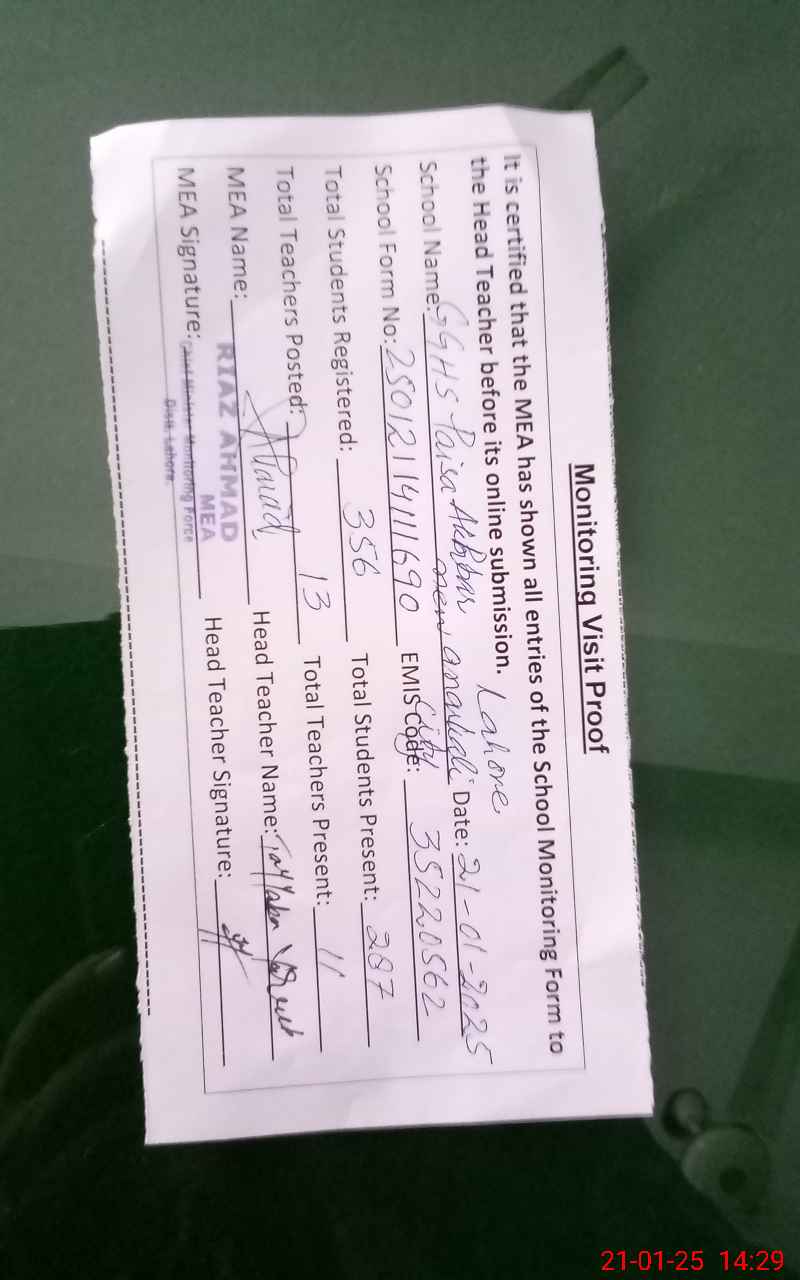 Monitoring Visit Proof
It is certified that the MEA has shown all entries of the School Monitoring Form to
the Head Teacher before its online submission. Lahore
School Name: GGHS Paisa Akhbar new anarkali City Date: 21-01-2025
School Form No: 25012114111690 EMIS Code: 35220562
Total Students Registered: 356 Total Students Present: 287
Total Teachers Posted: 13 Total Teachers Present: 11
MEA Name: Head Teacher Name: Tayyaba
RIAZ AHMAD
MEA
MEA Signature: Chief Minister Monitoring Force Head Teacher Signature:
Distt. Lahore.
21-01-25 14:29